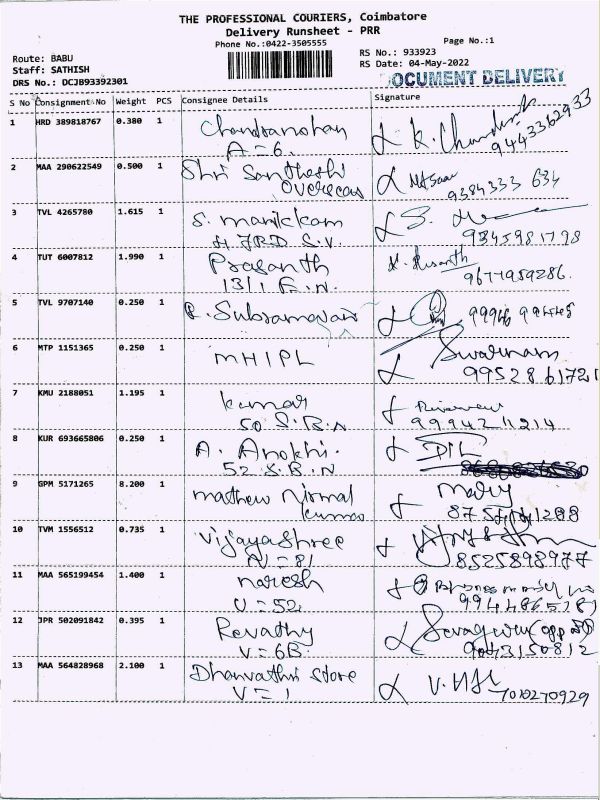 THE PROFESSIONAL COURIERS, Coimbatore
Delivery Runsheet - PRR
Phone No.:0422-3505555
Page No.:1
Route: BABU
RS No.: 933923
Staff: SATHISH
RS Date: 04-May-2022
DRS No.: DCJB93392301
DOCUMENT DELIVERY
S No Consignment No Weight PCS Consignee Details Signature
1 HRD 389818767 0.380 1 Chandramohan
A=6. 9443362933
2 MAA 290622549 0.500 1 Shri Santhoshi
Overseas 9384333 634
3 TVL 4265780 1.615 1 S. manickam
S.V. 9345981798
4 TUT 6007812 1.990 1 Prasanth
131, 9677959286.
5 TVL 9707140 0.250 1
6 MTP 1151365 0.250 1 MHIPL Swarnam
9952861721
7 KMU 2188051 1.195 1 kumar
50 S.B.N
8 KUR 693665806 0.250 1 A. Anokhi.
52 S.B.N
9 GPM 5171265 8.200 1 mathew Nirmal mary
kumar
10 TVM 1556512 0.735 1 Vijayashree
8525898977
11 MAA 565199454 1.400 1 naresh
V=52
12 JPR 502091842 0.395 1 Revathy
V=6B 9043150812
13 MAA 564828968 2.100 1 Dhanvathri store
V=1 7010270929